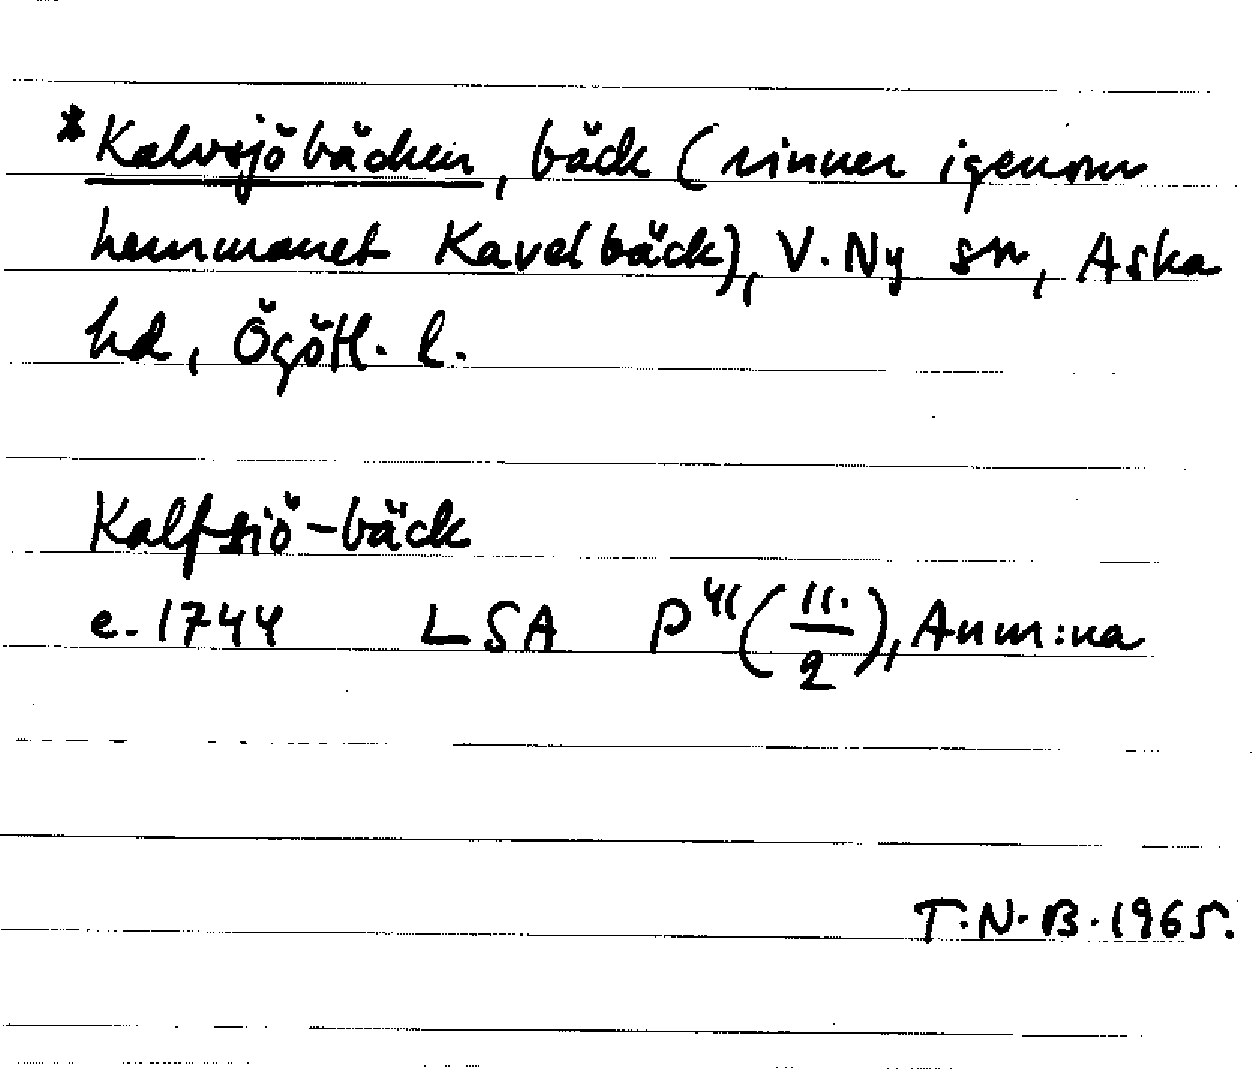 *Kalvsjöbäcken, bäck (rinner igenom
hemmanet Kavelbäck), V. Ny sn, Aska
hd, Ögötl. l.
Kalfsiö-bäck
e. 1744 LSA P41 (11./2), Anm:na
T.N.B. 1965.